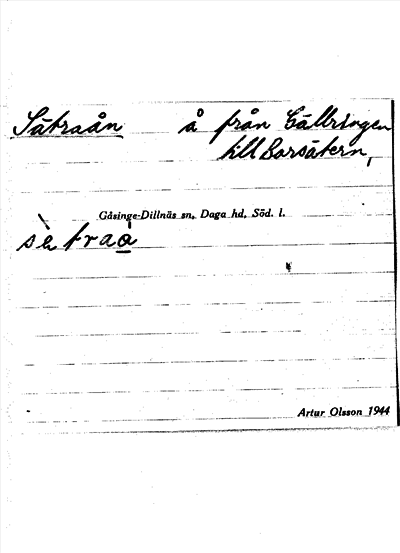 Sätraån å från Gällringen
till Borsätern,
Gåsinge-Dillnäs sn, Daga hd, Söd. l.
sètraå̀
Artur Olsson 1944